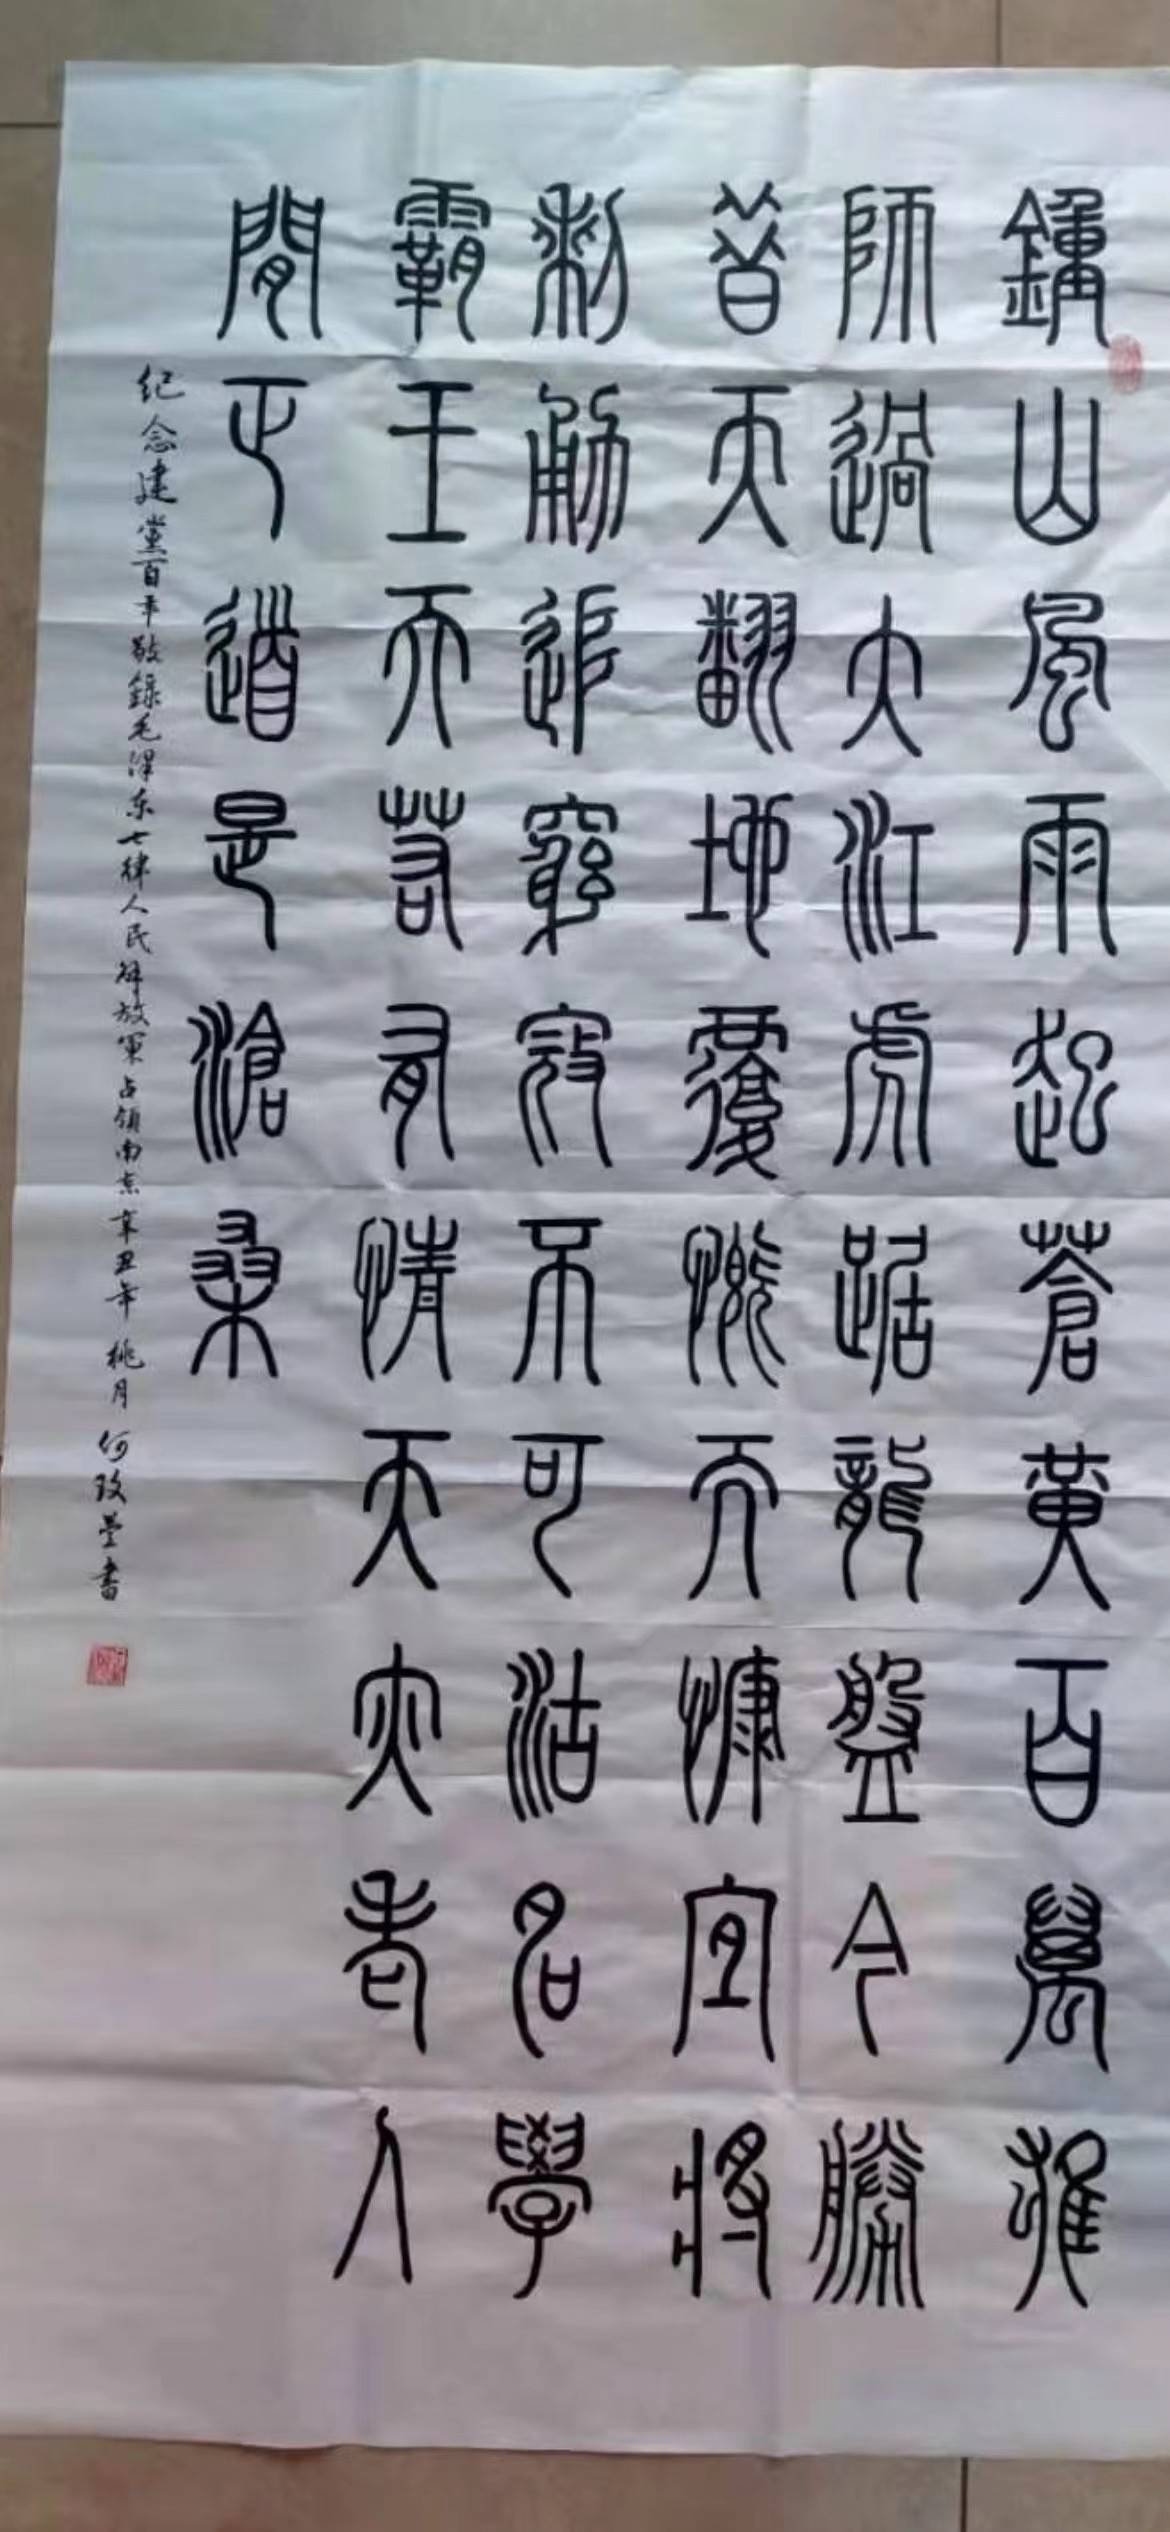 鍾山風雨起蒼黃百萬雄
師過大江虎踞龍盤今勝
昔天翻地覆慨而慷宜將
剩勇追窮寇不可沽名學
霸王天若有情天亦老人
間正道是滄桑
纪念建黨百年敬録毛泽东七律人民解放军占领南京辛丑年桃月何玫莹書